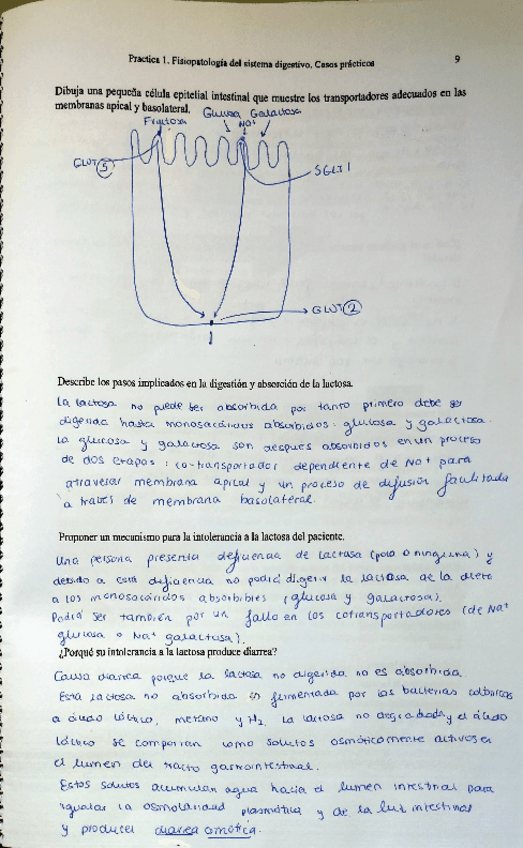 Practica 1. Fisiopatología del sistema digestivo. Casos prácticos
9
Dibuja una pequeña célula epitelial intestinal que muestre los transportadores adecuados en las
membranas apical y basolateral.
Fructosa
Glucosa Galactosa
Na+
GLUT 5
SGLT 1
GLUT 2
Describe los pasos implicados en la digestión y absorción de la lactosa.
La lactosa no puede ser absorbida por tanto primero debe ser
digerida hasta monosacáridos absorbidos: glucosa y galactosa.
La glucosa y galactosa son después absorbidos en un proceso
de dos etapas: co-transportador dependiente de Na+ para
atravesar membrana apical y un proceso de difusión facilitada
a través de membrana basolateral.
Proponer un mecanismo para la intolerancia a la lactosa del paciente.
Una persona presenta deficiencia de lactasa (poca o ninguna) y
debido a esta deficiencia no podrá digerir la lactosa de la dieta
a los monosacáridos absorbibles (glucosa y galactosa).
Podrá ser también por un fallo en los cotransportadores (de Na+
glucosa o Na+ galactosa).
¿Porqué su intolerancia a la lactosa produce diarrea?
Causa diarrea porque la lactosa no digerida no es absorbida.
Esta lactosa no absorbida es fermentada por las bacterias colónicas
a ácido láctico, metano y H2. La lactosa no degradada y el ácido
láctico se comportan como solutos osmóticamente activos en
el lumen del tracto gastrointestinal.
Estos solutos acumulan agua hacia el lumen intestinal para
igualar la osmolaridad plasmática y de la luz intestinal
y producen diarrea osmótica.